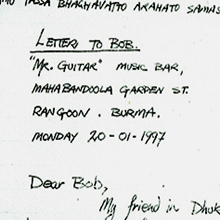 TASSA BHAGAVATTO ARAHATO
LETTERS TO BOB.
"MR. GUITAR" MUSIC BAR,
MAHABANDOOLA GARDEN ST.
RANGOON. BURMA.
MONDAY 20-01-1997
Dear Bob,
My friend in